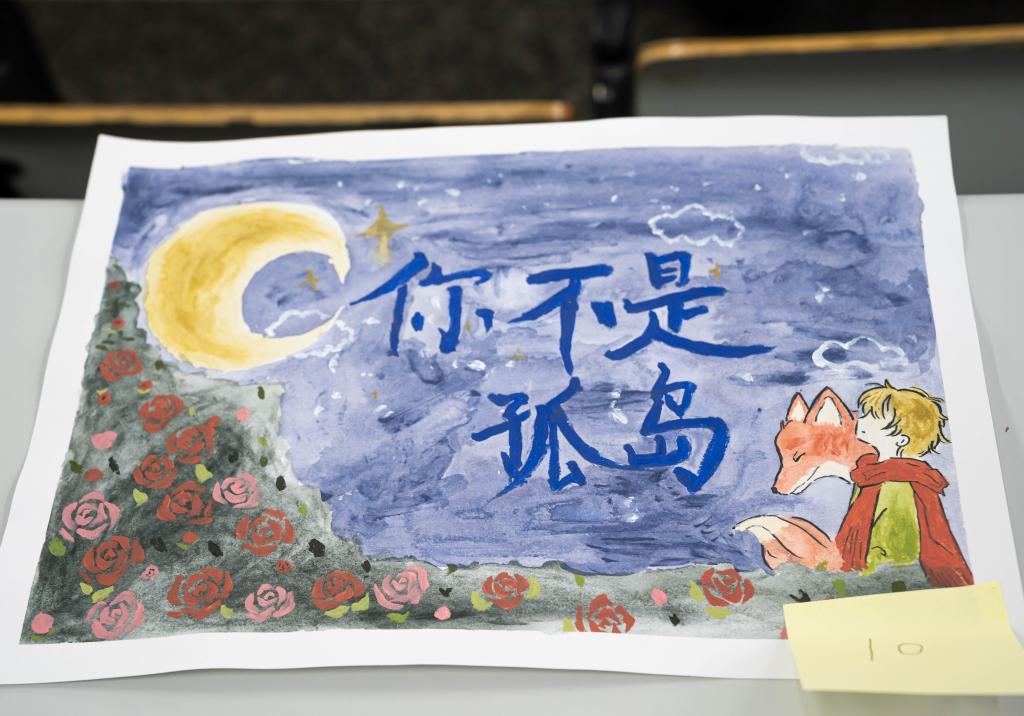 你不是
孤岛
10